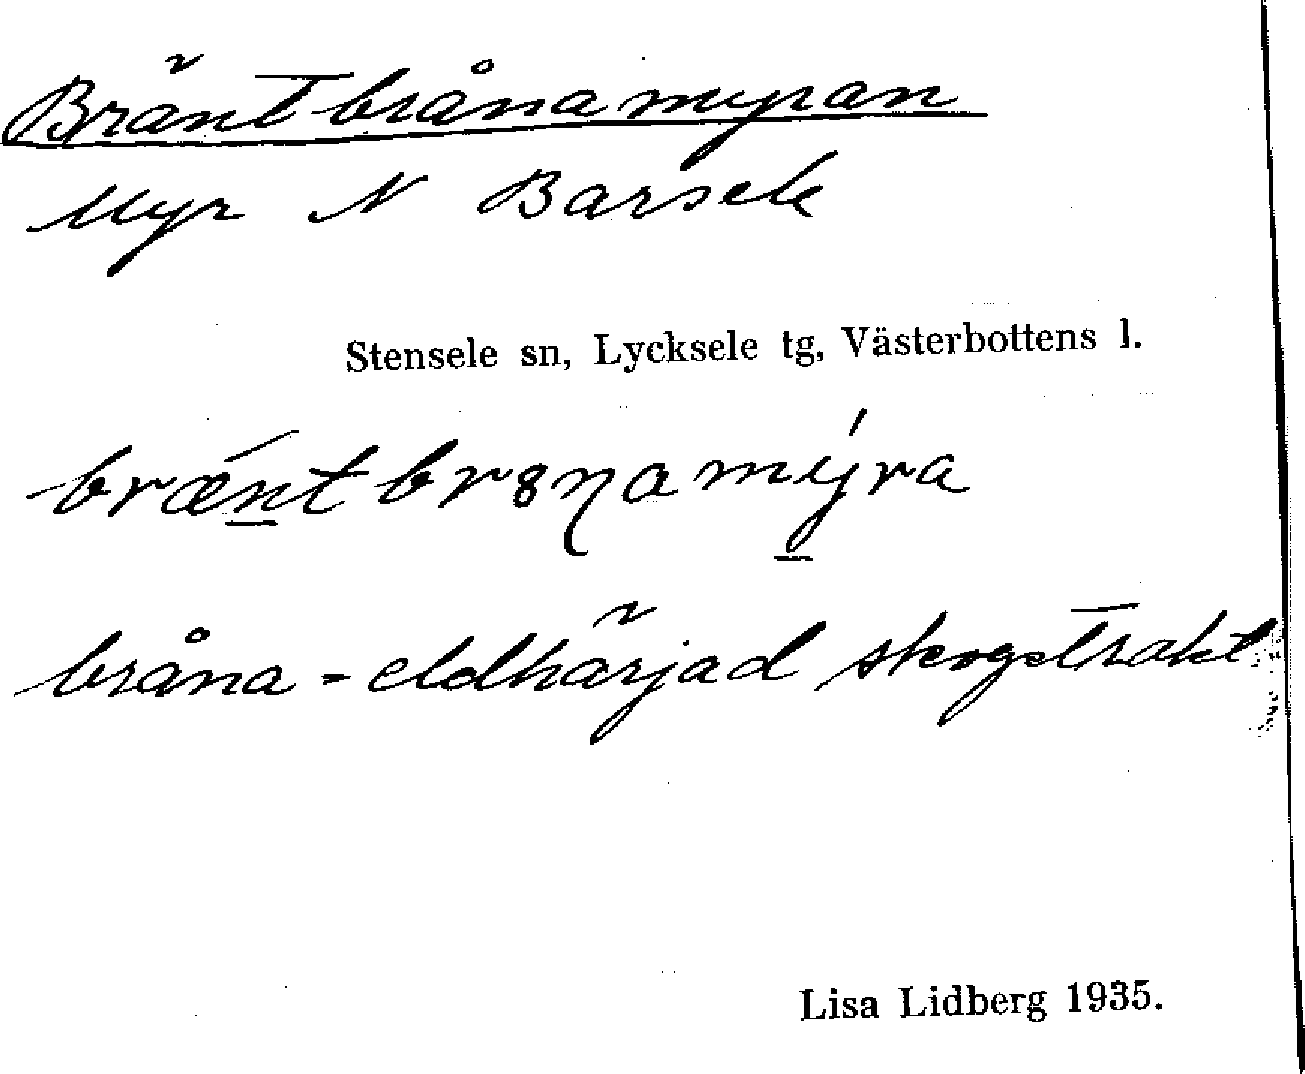 Bräntbrånamyran
Myr N Barsele
Stensele sn, Lycksele tg, Västerbottens l.
brǽn̲tbrꞛŋamý̲ra
bråna - eldhärjad skogstrakt
Lisa Lidberg 1935.